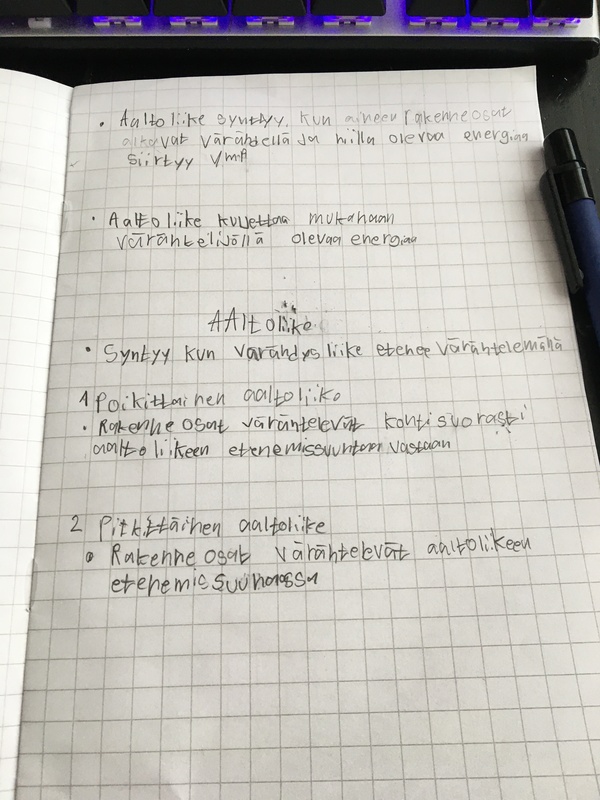 • Aaltoliike syntyy, kun aineen rakenneosat
alkavat värähdellä ja niillä olevaa energiaa
siirtyy
• Aaltoliike kuljettaa mukanaan
värähtelijöllä olevaa energiaa
AAltoliike
• Syntyy kun värähdysliike etenee värähtelemänä
1 Poikittainen aaltoliike
• Rakenneosat värähtelevät kohtisuorasti
aaltoliikeen etenemissuuntaa vastaan
2 Pitkittäinen aaltoliike
• Rakenneosat värähtelevät aaltoliikeen
etenemissuunnassa